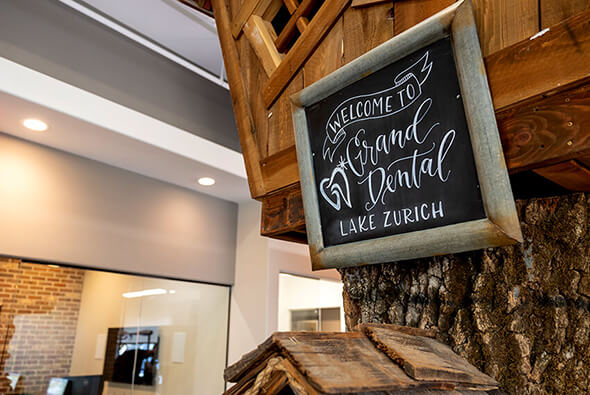 WELCOME TO
Grand
Dental
LAKE ZURICH